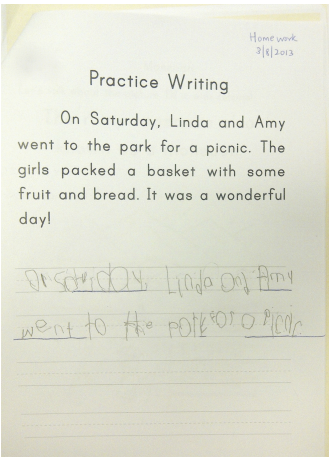 Homework
3/8/2013
Practice Writing
On Saturday, Linda and Amy
went to the park for a picnic. The
girls packed a basket with some
fruit and bread. It was a wonderful
day!
Linda and Amy
went to the park